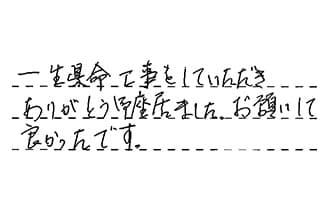 一生県命工事をしていただき
ありがとう御座居ました。お願いして
良かったです。